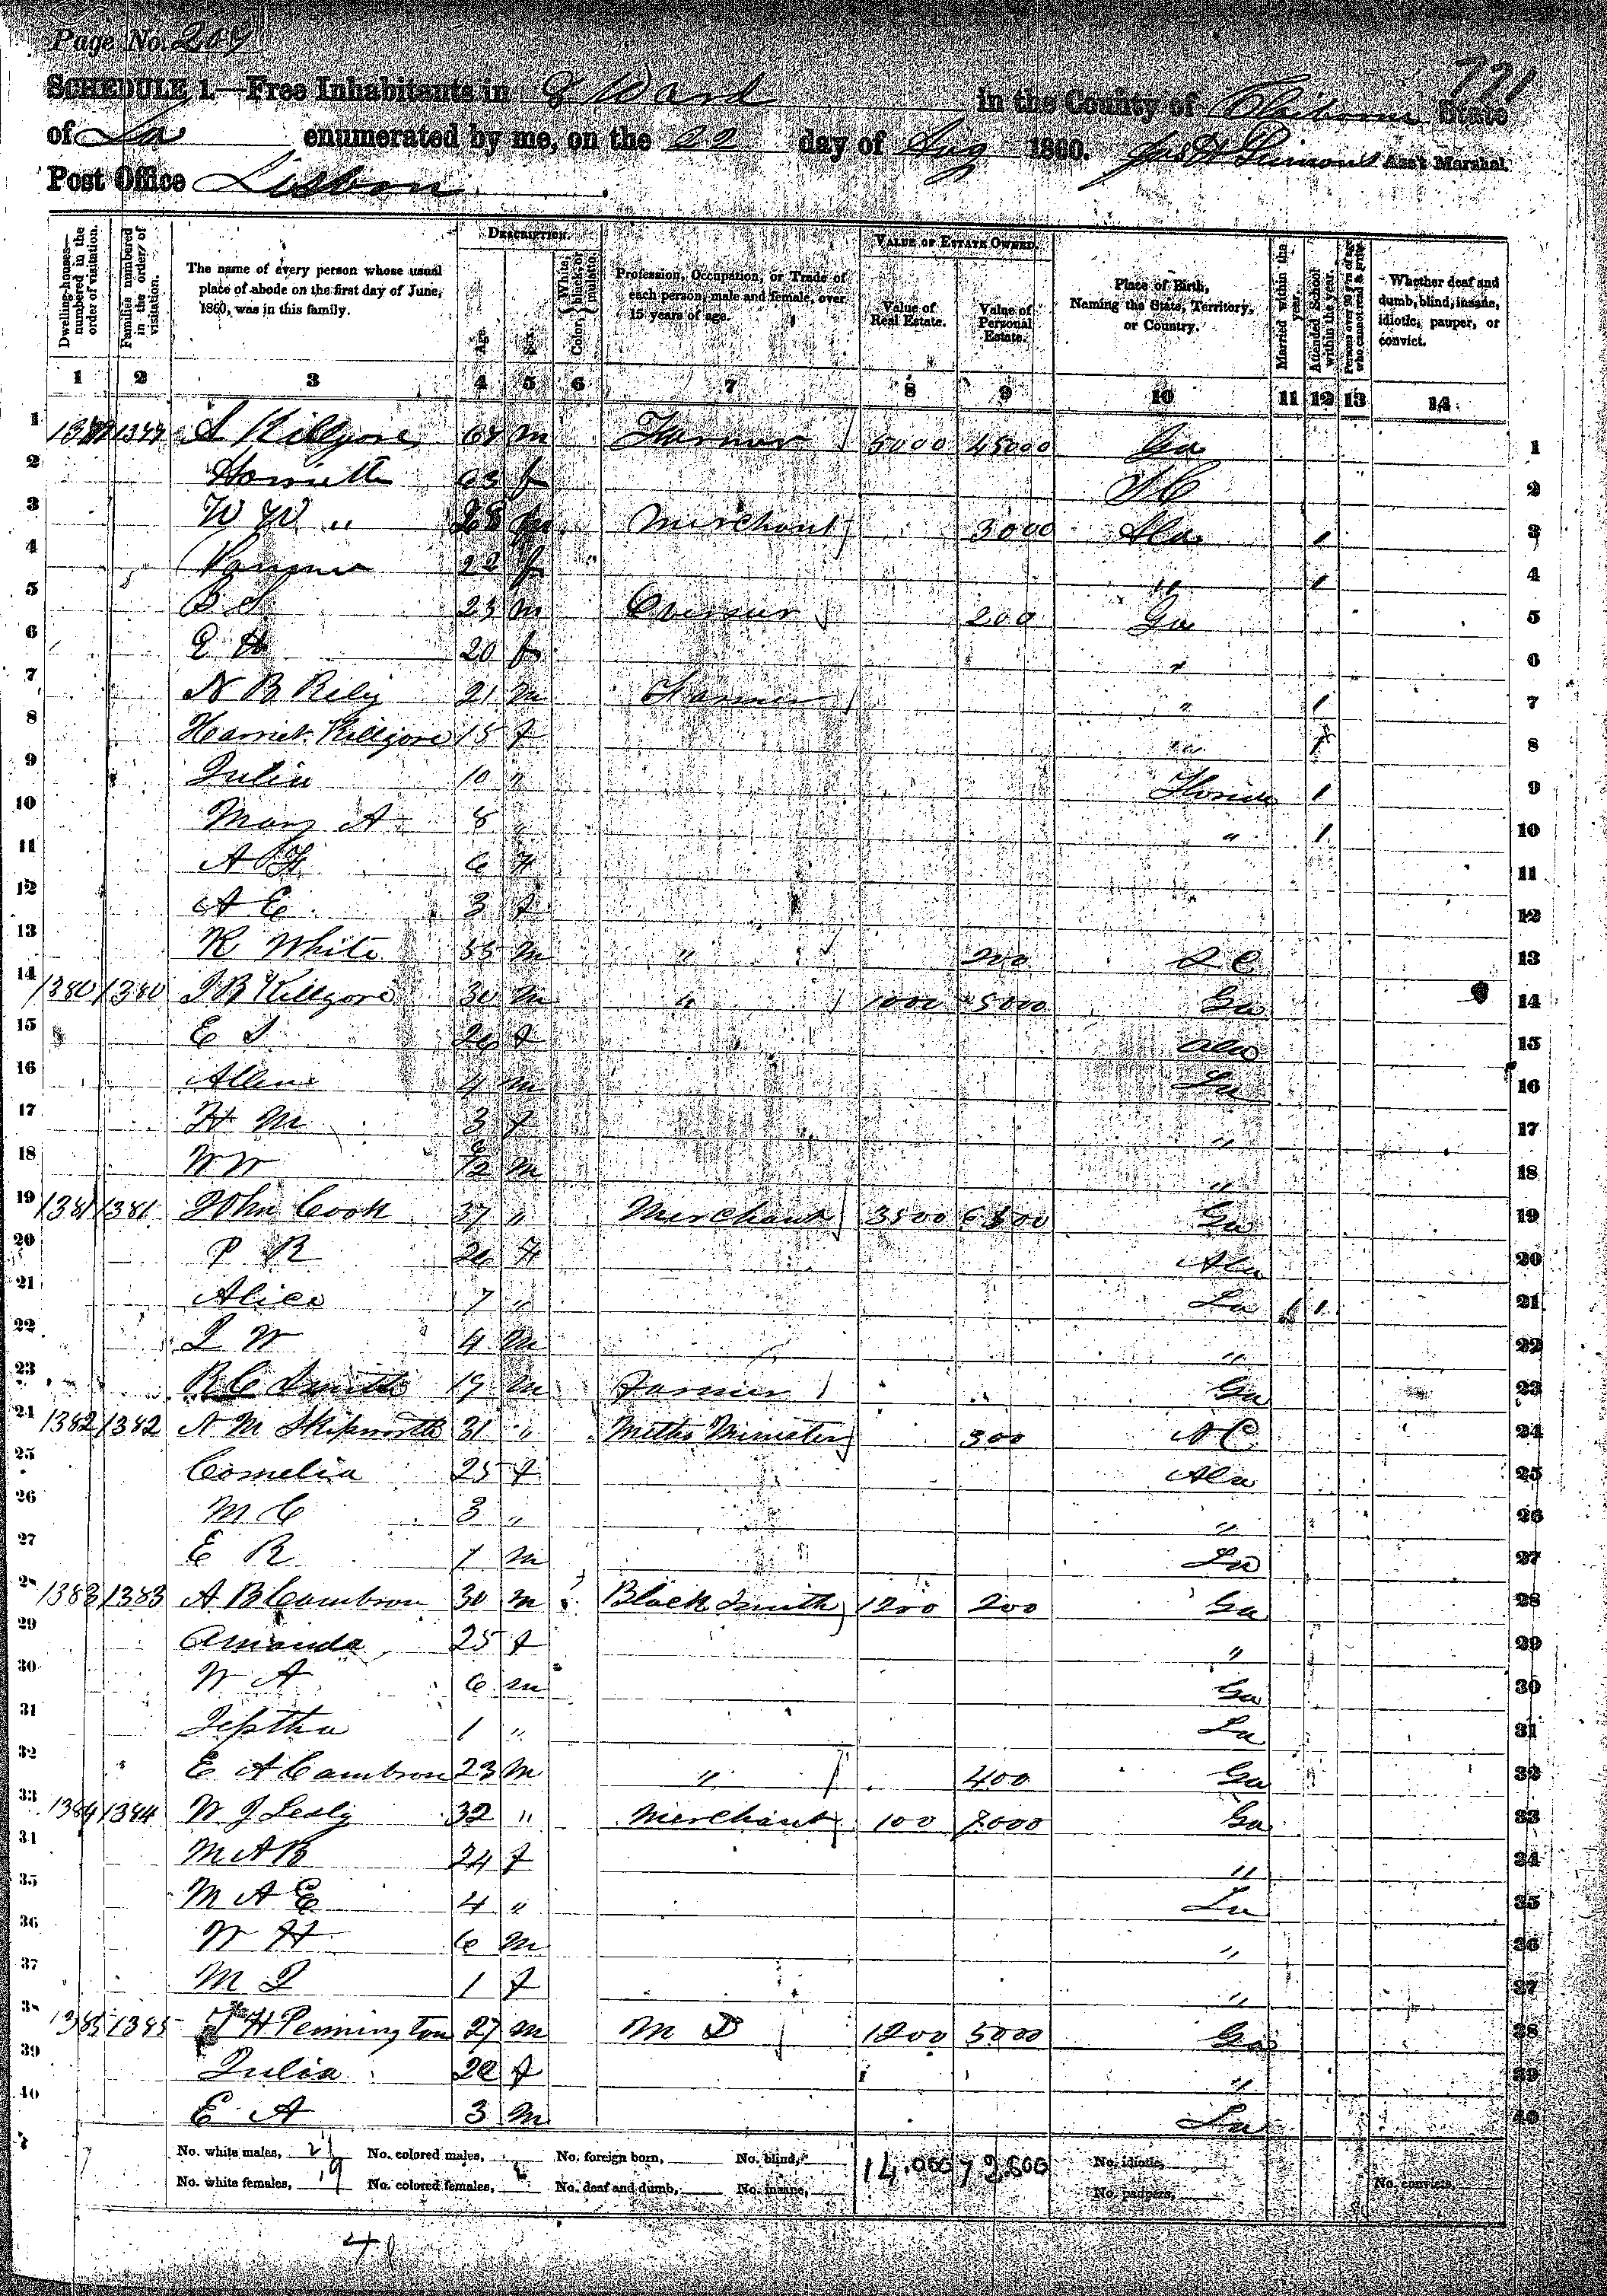 Page No. 209
721
SCHEDULE 1.—Free Inhabitants in 8 Ward in the County of Claiborne State
of La enumerated by me, on the 22 day of Aug 1860. Ass't Marshal.
Post Office Lisbon
Dwelling-houses—numbered in the order of visitation.
Families numbered in the order of visitation.
The name of every person whose usual place of abode on the first day of June, 1860, was in this family.
DESCRIPTION.
Age.
Sex.
Color, White, black, or mulatto.
Profession, Occupation, or Trade of each person, male and female, over 15 years of age.
VALUE OF ESTATE OWNED.
Value of Real Estate.
Value of Personal Estate.
Place of Birth, Naming the State, Territory, or Country.
Married within the year.
Attended School within the year.
Persons over 20 y'rs of age who cannot read & write.
Whether deaf and dumb, blind, insane, idiotic, pauper, or convict.
1 2 3 4 5 6 7 8 9 10 11 12 13 14
1 Killgore m Farmer 5000 45000 Ga 1
2 f 2
3 W W " 28 Merchant 3000 Ala / 3
4 22 f " / 4
5 B S 23 m Overseer 200 Ga 5
6 20 f " 6
7 N B Rily 21 m Farmer " / 7
8 Harriet Killgore 15 f " / 8
9 Julia 10 " Florida / 9
10 Mary A 8 " " / 10
11 6 11
12 A E 3 f 12
13 R White 55 m " 200 S C 13
14 1380 1380 J B Killgore 30 m " 1000 5000 Ga 14
15 E S 26 f Ala 15
16 Allen 4 m La 16
17 H M 3 f " 17
18 W W m " 18
19 1381 1381 John Cook 37 " Merchant 3500 Ga 19
20 P R 26 f Ala 20
21 Alice 7 " La / / 21
22 J W 4 m " 22
23 R C Smith 19 m Farmer Ga 23
24 1382 1382 N M Skipworth 31 " Meths Minister 300 N C 24
25 Cornelia 25 f Ala 25
26 M C 3 " " 26
27 E R 1 m La 27
28 1383 1383 A B Cambron 30 m Black Smith 1200 200 Ga 28
29 Amanda 25 f " 29
30 W A 6 m Ga 30
31 Jeptha 1 " La 31
32 E A Cambron 23 m " 400 Ga 32
33 1384 1384 W J Lesly 32 " Merchant 100 Ga 33
34 M A B 24 f " 34
35 M A E 4 " La 35
36 W H 6 m " 36
37 M J 1 f " 37
38 1385 1385 H Pennington 27 m M D 1200 5000 Ga 38
39 Julia f " 39
40 E A 3 m La 40
No. white males, 21 No. colored males, No. foreign born, No. blind, 14.000 No. idiotic,
No. white females, 19 No. colored females, No. deaf and dumb, No. insane, No. paupers, No. convicts,